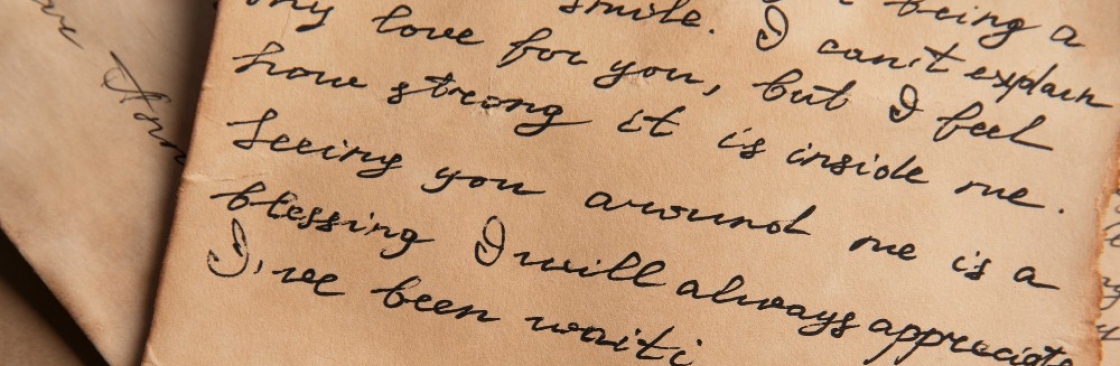 smile. I being a
my love for you, but I can't explain
how strong it is inside me. I feel
Seeing you around me is a
blessing I will always appreciate
I've been waiti